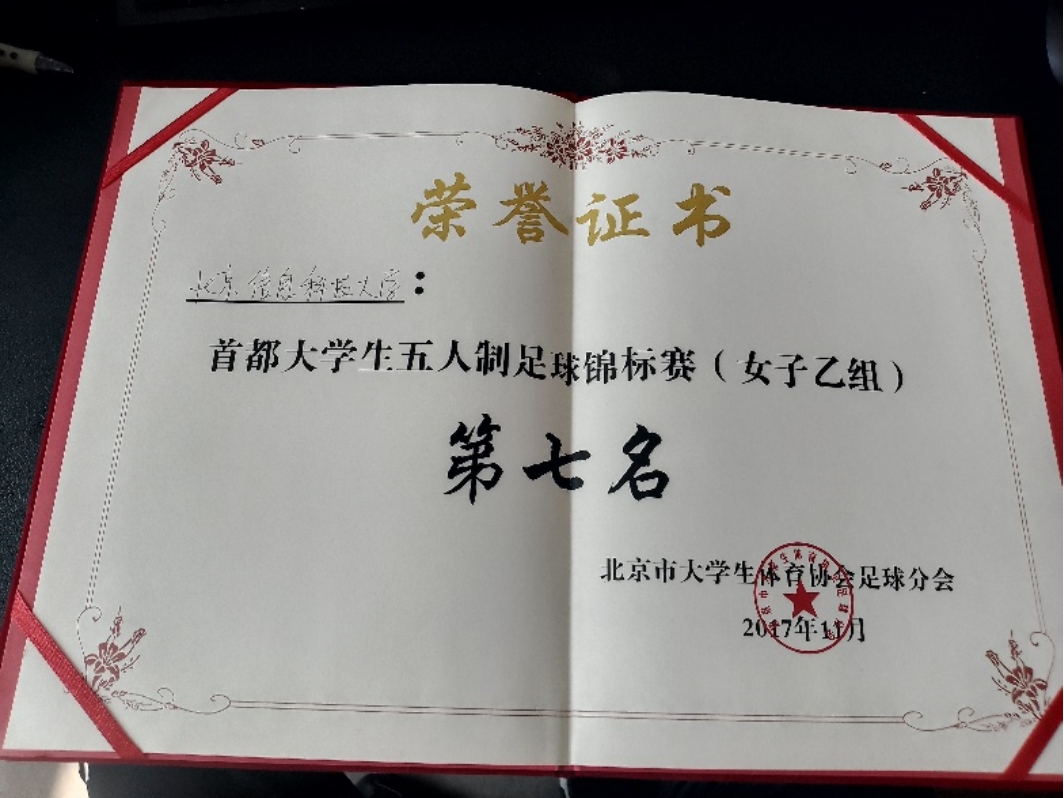 荣誉证书
北京信息科技大学：
首都大学生五人制足球锦标赛（女子乙组）
第七名
北京市大学生体育协会足球分会
2017年11月